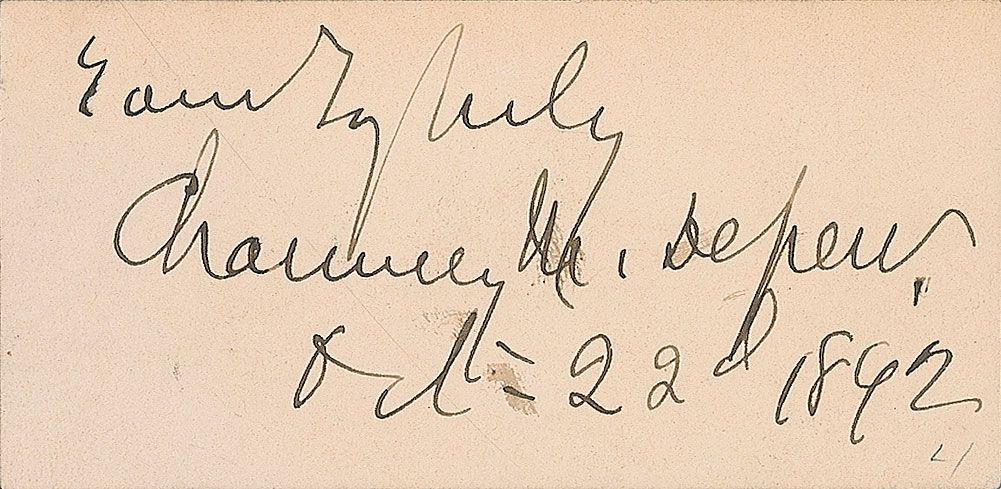 Yours Truly
Chauncey M. Depew
Oct - 22d 1892